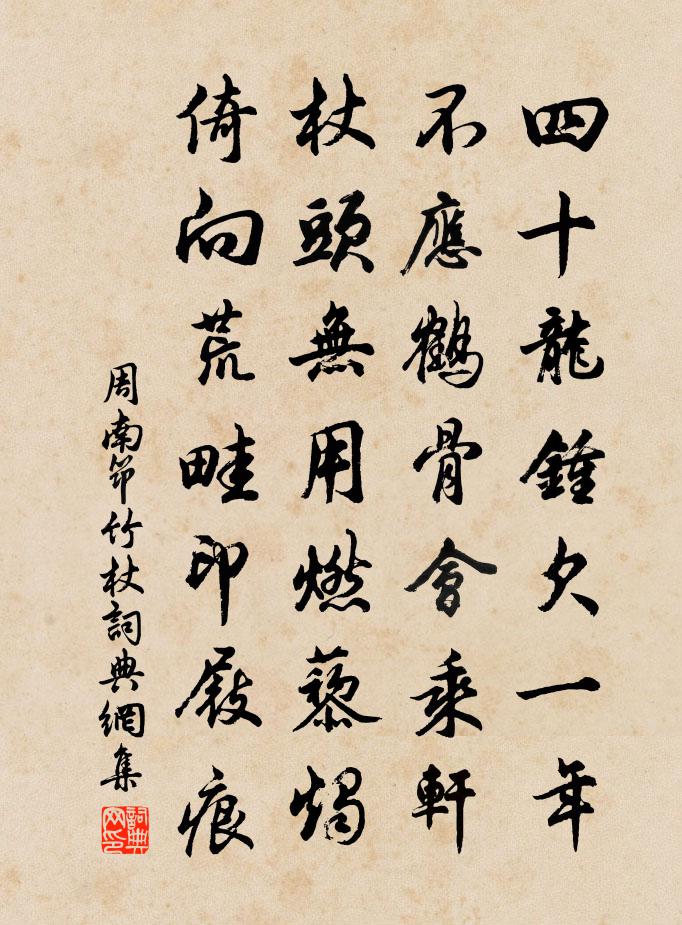 四十龍鍾欠一年
不應鶴骨會乘軒
杖頭無用燃藜燭
倚向荒畦印屐痕
周南節竹杖詞典網集
詞典网印